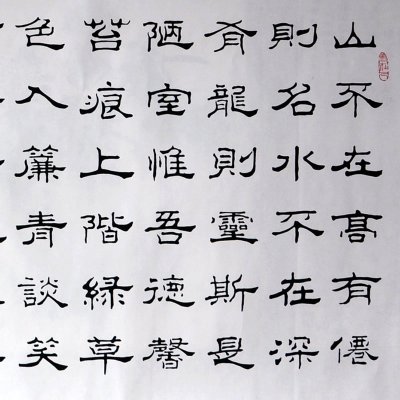 山不在高有僊
則名水不在深
有龍則靈斯是
陋室惟吾德馨
苔痕上階綠草
色入簾青談笑